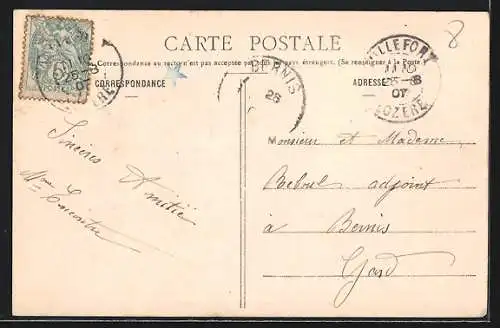 CARTE POSTALE
La Correspondance au recto n'est pas acceptée par tous les pays étrangers. (Se renseigner à la Poste)
CORRESPONDANCE
ADRESSE
BERNIS
26
VILLEFORT
25-8
07
LOZERE
8
Sincères
Amitié
Mme
Monsieur et Madame
Reboul adjoint
à Bernis
Gard